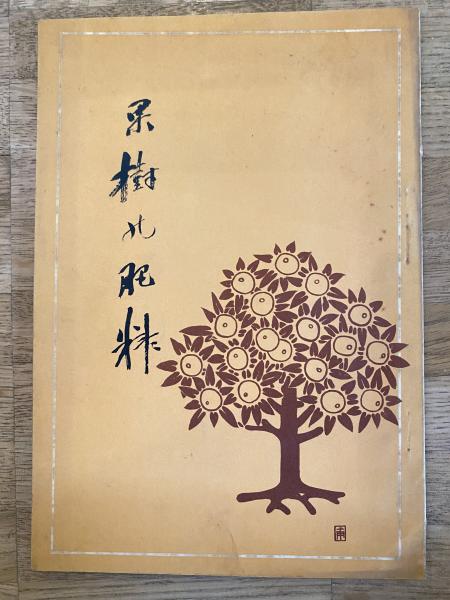 果樹の肥料